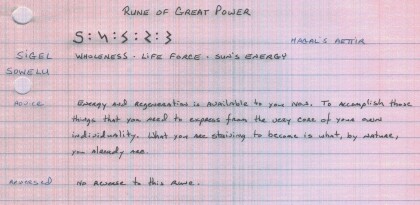 Rune of Great Power
Hagal's Aettir
Sigel Wholeness · Life Force · Sun's Energy
Sowelu
Advice Energy and regeneration is available to you now. To accomplish those
things that you need to express from the very core of your own
individuality. What you are striving to become is what, by nature,
you already are.
Reversed No reverse to this rune.